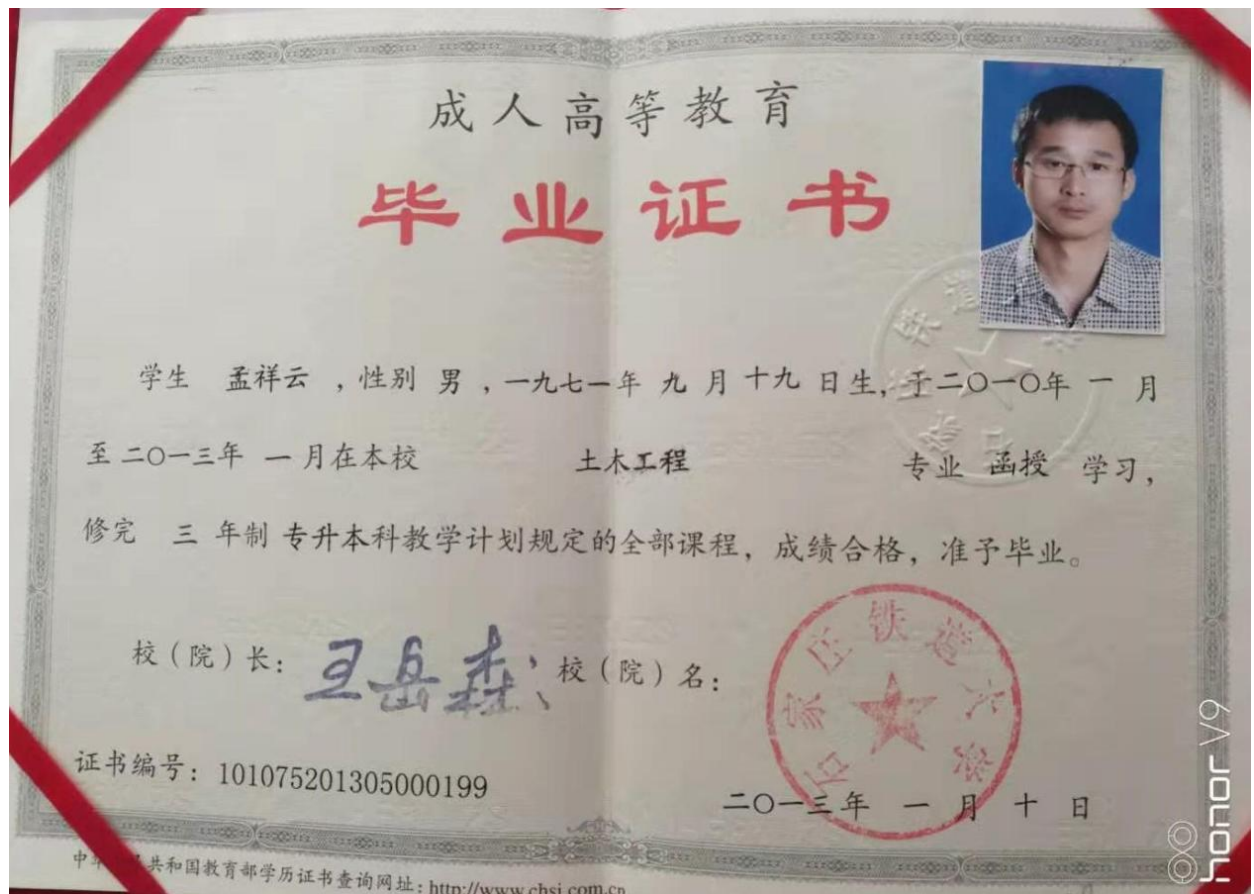 成人高等教育
毕业证书
学生 孟祥云 ，性别 男 ，一九七一年 九 月 十九 日生，于二〇一〇年 一 月
至 二〇一三年 一 月在本校 土木工程 专业 函授 学习，
修完 三 年制 专升本科教学计划规定的全部课程，成绩合格，准予毕业。
校（院）长： 王岳森 校（院）名：
石家庄铁道大学
证书编号：101075201305000199
二〇一三年 一 月 十 日
共和国教育部学历证书查询网址：http://www.chsi.com.cn
honor V9